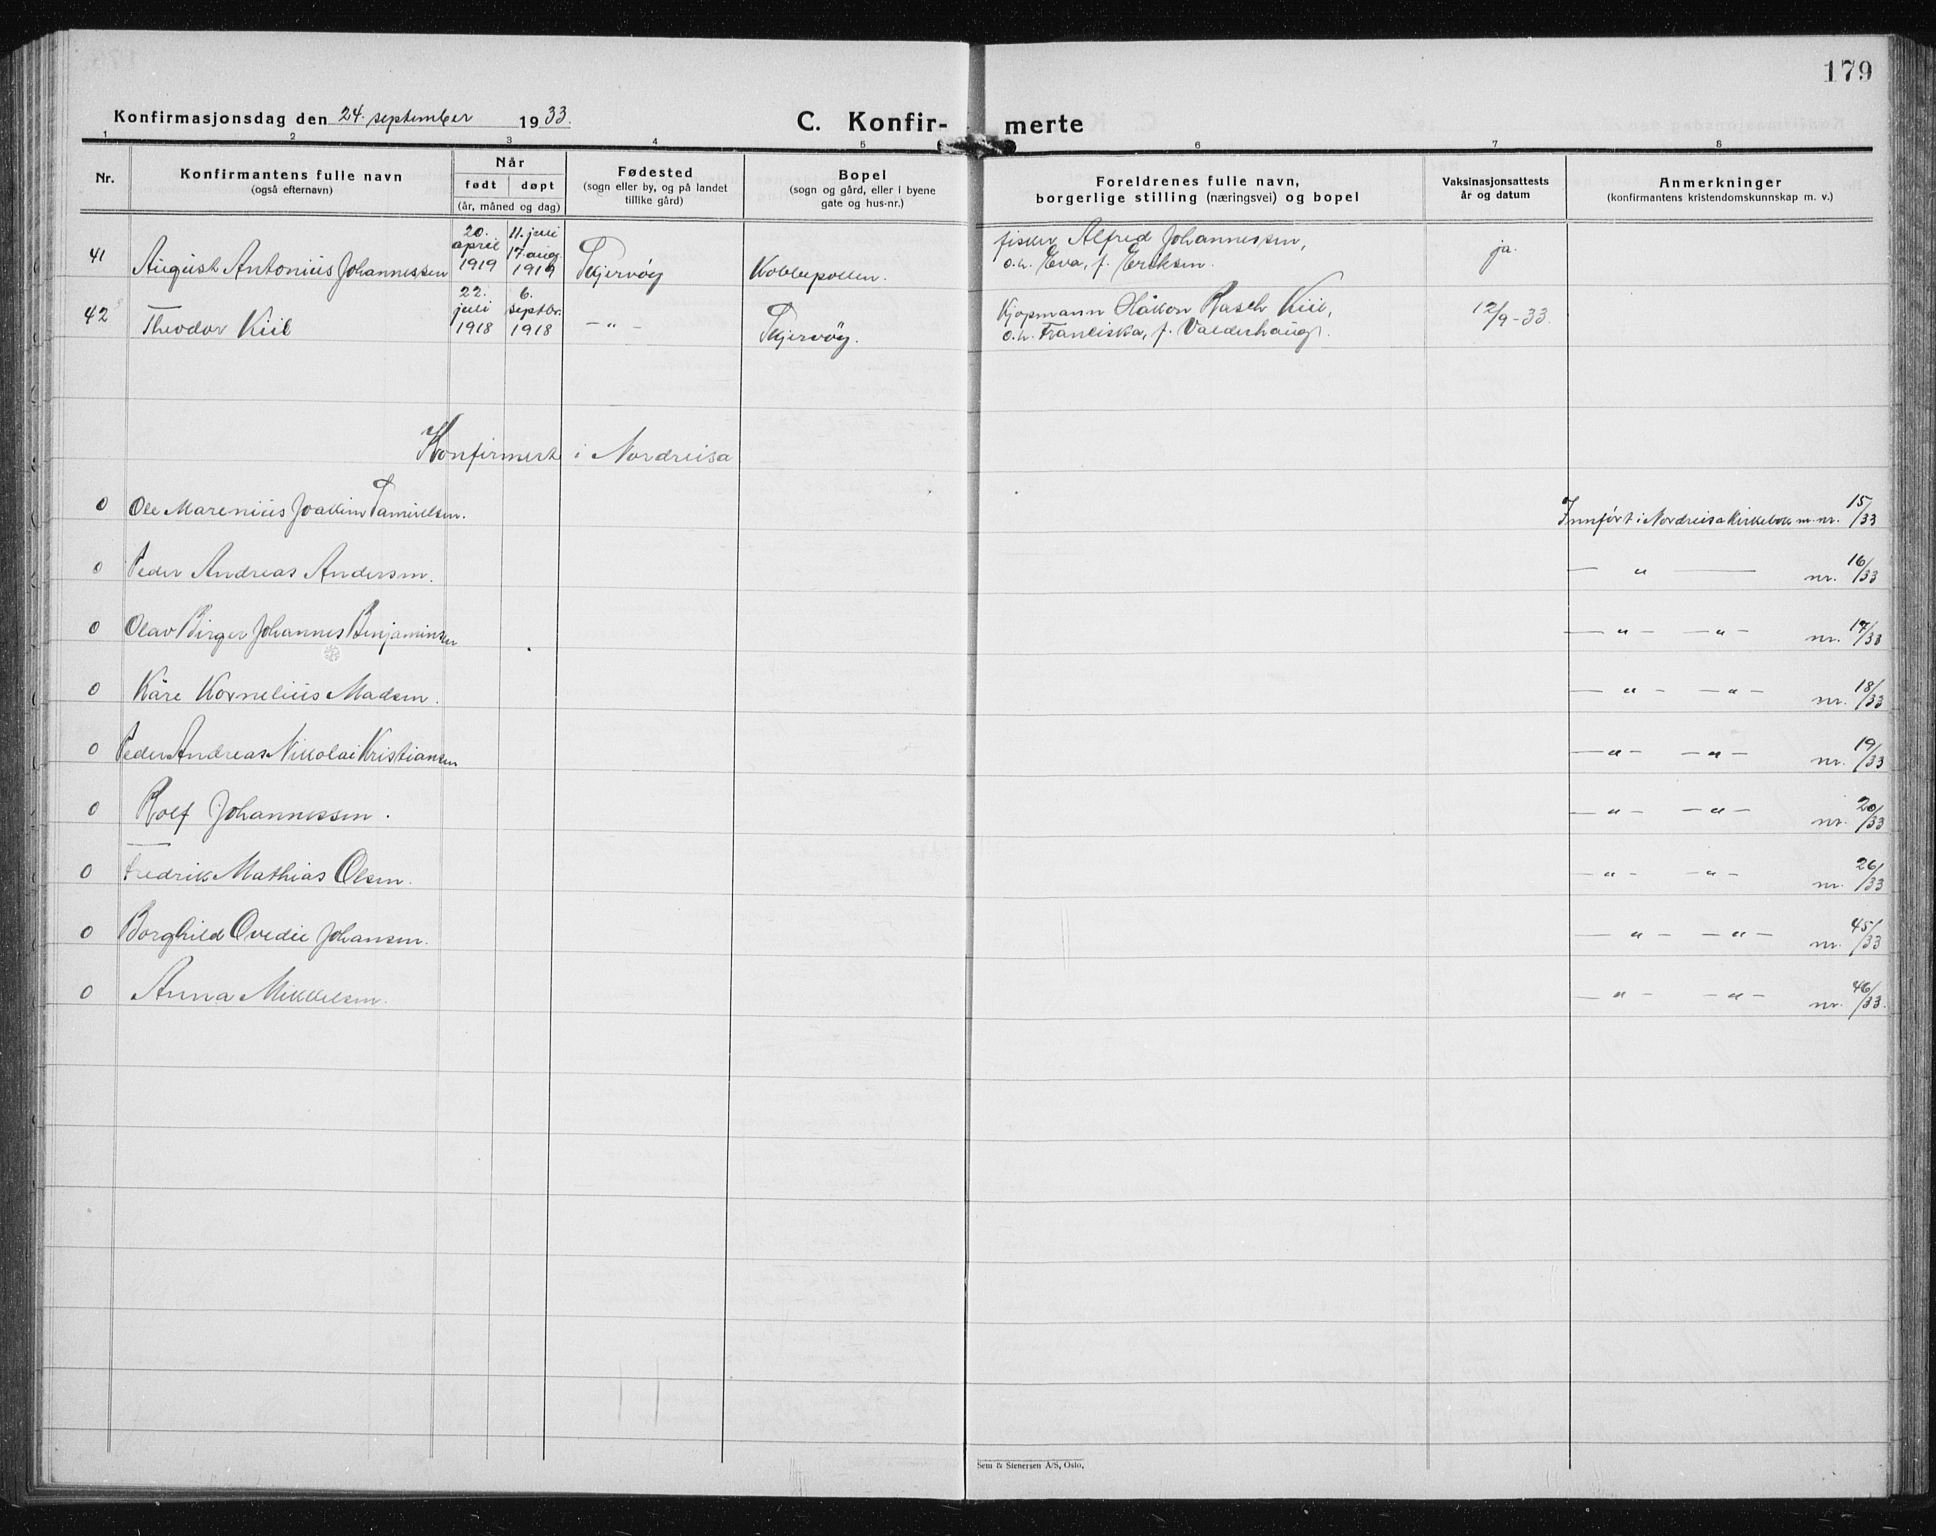 179
Konfirmasjonsdag den 24. september 1933.
C. Konfir- merte
1 2 3 4 5 6 7 8
Nr.
Konfirmantens fulle navn
(også efternavn)
Når
født døpt
(år, måned og dag)
Fødested
(sogn eller by, og på landet
tillike gård)
Bopel
(sogn og gård, eller i byene
gate og hus-nr.)
Foreldrenes fulle navn,
borgerlige stilling (næringsvei) og bopel
Vaksinasjonsattests
år og datum
Anmerkninger
(konfirmantens kristendomskunnskap m. v.)
41 August Antonius Johannessen
20. april 1919
11. juli 17. aug. 1919
Skjervøy
Kobbepollen.
fisker Alfred Johannessen,
o.h. Eva, f. Eriksen.
ja.
42 Theodor Kiil
22. juli 1918
6. septbr. 1918
— " —
Skjervøy.
Kjøpmann Håkon Rasch Kiil,
o.h. Franciska, f. Valderhaug.
12/9-33.
Konfirmert i Nordreisa
0 Ole Marenius Joakim Samuelsen. Innført i Nordreisa Kirkebok m. nr. 15/33
0 Peder Andreas Andersen. — " — nr. 16/33
0 Olav Birger Johannes Benjaminsen — " — — " — nr. 17/33
0 Kåre Kornelius Madsen. — " — — " — nr. 18/33
0 Peder Andreas Nikolai Kristiansen — " — — " — nr. 19/33
0 Rolf Johannessen. — " — — " — nr. 20/33
0 Fredrik Mathias Olsen. — " — — " — nr. 26/33
0 Borghild Ovedie Johansen. — " — — " — nr. 45/33
0 Anna Mikkelsen. — " — — " — nr. 46/33.
Sem & Stenersen A/S, Oslo.